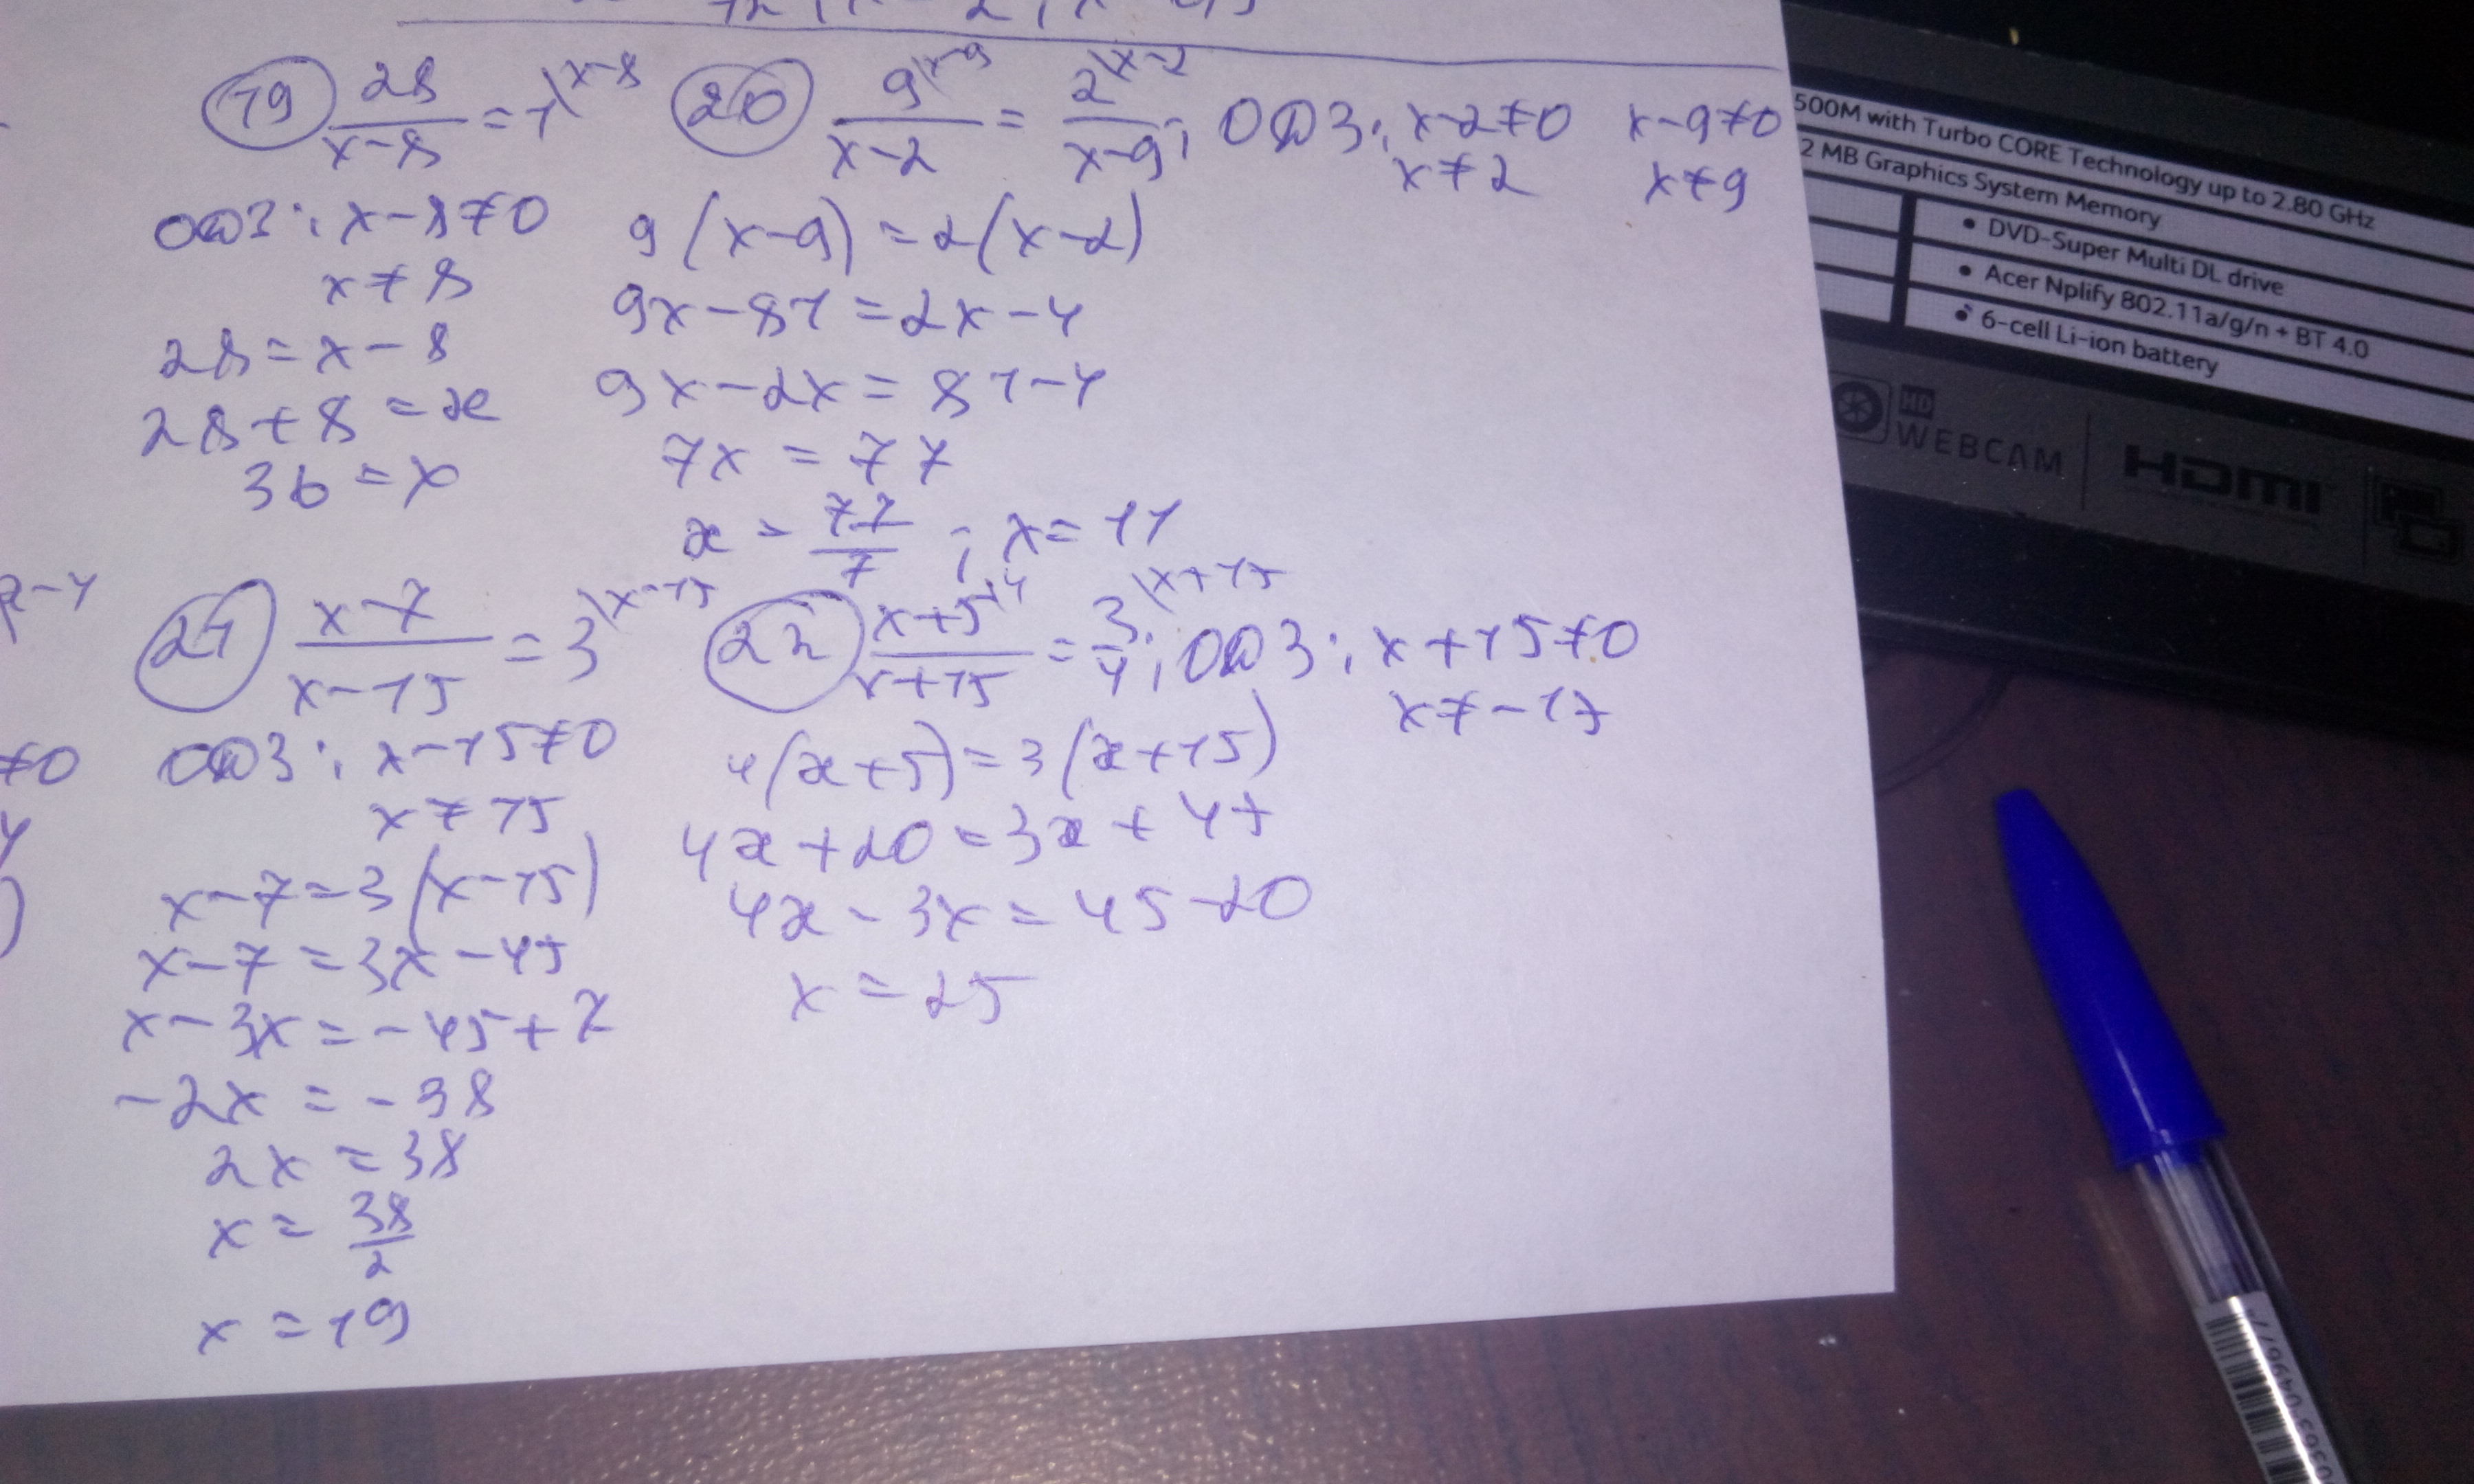 19 28/(x-8) = 1 \x-8
ОДЗ: x-8≠0
x≠8
28=x-8
28+8=x
36=x
20 9\x-9/(x-2) = 2\x-2/(x-9); ОДЗ: x-2≠0 x-9≠0
x≠2 x≠9
9(x-9)=2(x-2)
9x-81=2x-4
9x-2x=81-4
7x=77
x=77/7; x=11
21 (x-7)/(x-15) = 3 \x-15
ОДЗ: x-15≠0
x≠15
x-7=3(x-15)
x-7=3x-45
x-3x=-45+7
-2x=-38
2x=38
x=38/2
x=19
22 (x+5)\4/(x+15) = 3\x+15/4; ОДЗ: x+15≠0
x≠-15
4(x+5)=3(x+15)
4x+20=3x+45
4x-3x=45-20
x=25
x-4
≠0
500M with Turbo CORE Technology up to 2.80 GHz
2 MB Graphics System Memory
• DVD-Super Multi DL drive
• Acer Nplify 802.11a/g/n + BT 4.0
• 6-cell Li-ion battery
HD
WEBCAM
HDMI